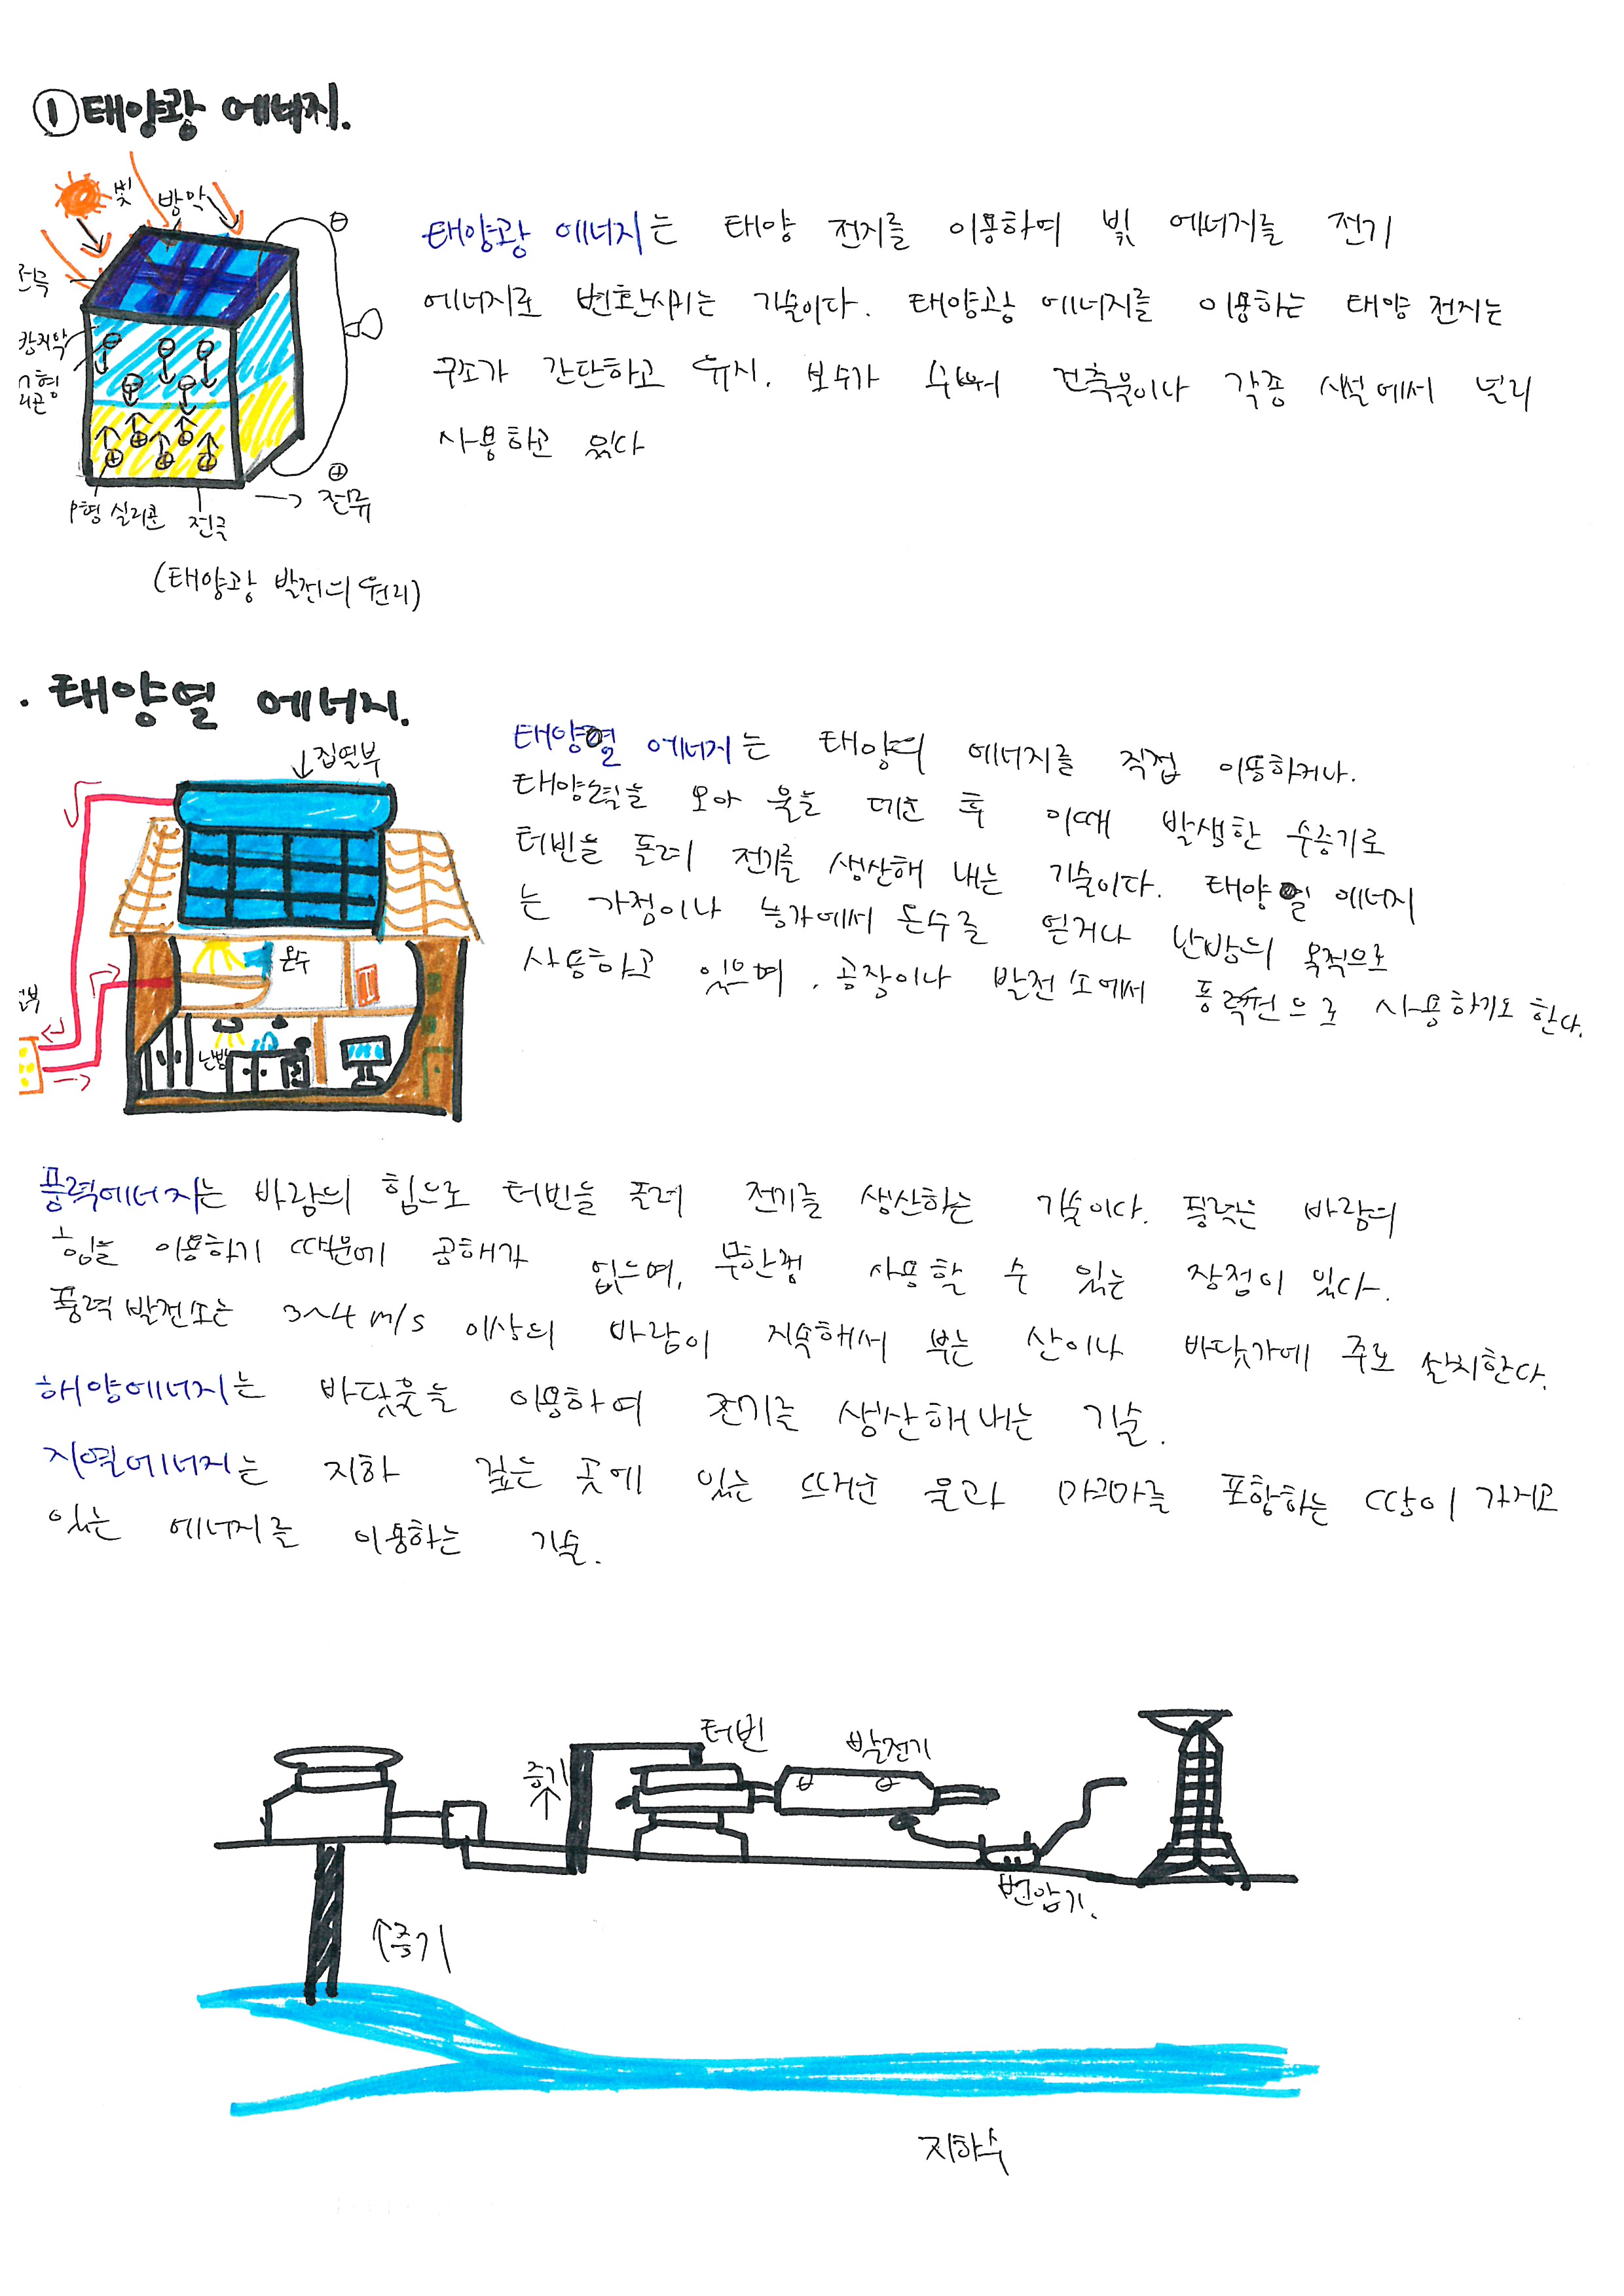 ① 태양광 에너지.
빛 방막
전극
n형
p형 실리콘 전극
⊖
⊕
→ 전류
(태양광 발전의 원리)
태양광 에너지는 태양 전지를 이용하여 빛 에너지를 전기
에너지로 변환시키는 기술이다. 태양광 에너지를 이용하는 태양 전지는
구조가 간단하고 유지. 보수가 쉬워 건축물이나 각종 시설에서 널리
사용하고 있다
. 태양열 에너지.
↓집열부
온수
난방
태양열 에너지는 태양의 에너지를 직접 이용하거나.
태양열을 모아 물을 데운 후 이때 발생한 수증기로
터빈을 돌려 전기를 생산해 내는 기술이다. 태양열 에너지
는 가정이나 농가에서 온수를 얻거나 난방의 목적으로
사용하고 있으며, 공장이나 발전소에서 동력원으로 사용하기도 한다.
풍력에너지는 바람의 힘으로 터빈을 돌려 전기를 생산하는 기술이다. 풍력은 바람의
힘을 이용하기 때문에 공해가 없으며, 무한정 사용할 수 있는 장점이 있다.
풍력 발전소는 3~4 m/s 이상의 바람이 지속해서 부는 산이나 바닷가에 주로 설치한다.
해양에너지는 바닷물을 이용하여 전기를 생산해내는 기술.
지열에너지는 지하 깊은 곳에 있는 뜨거운 물과 마그마를 포함하는 땅이 가지고
있는 에너지를 이용하는 기술.
터빈
발전기
증기
↑
변압기.
↑증기
지하수